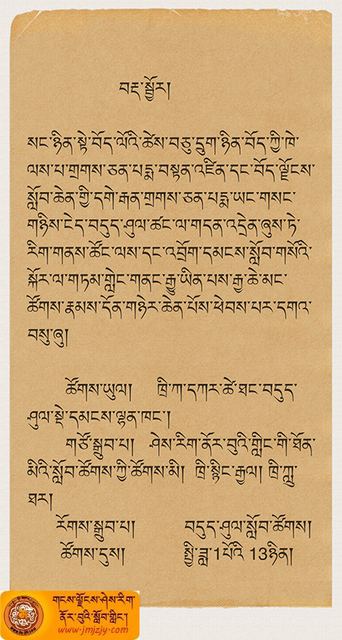 བརྡ་སྦྱོར།
སང་ཉིན་སྟེ་བོད་ལོའི་ཚེས་བཅུ་དྲུག་ཉིན་བོད་ཀྱི་ཁེ་
ལས་པ་གྲགས་ཅན་པདྨ་བསྟན་འཛིན་དང་བོད་ལྗོངས་
སློབ་ཆེན་གྱི་དགེ་རྒན་གྲགས་ཅན་པདྨ་ཡང་གསང་
གཉིས་ངེད་བདུད་ཤུལ་ཚང་ལ་གདན་འདྲེན་ཞུས་ཏེ་
རིག་གནས་ཚོང་ལས་དང་འབྲོག་དམངས་སློབ་གསོའི་
སྐོར་ལ་གཏམ་གླེང་གནང་རྒྱུ་ཡིན་པས་རྒྱ་ཆེ་མང་
ཚོགས་རྣམས་དོན་གཉེར་ཆེན་པོས་ཕེབས་པར་དགའ་
བསུ་ཞུ།
ཚོགས་ཡུལ། ཁྲི་ཀ་དཀར་ཚེ་ཐང་བདུད་
ཤུལ་སྡེ་དམངས་ལྷན་ཁང་།
གཙོ་སྒྲུབ་པ། ཤེས་རིག་ནོར་བུའི་གླིང་གི་ཐོན་
མིའི་སློབ་ཚོགས་ཀྱི་ཚོགས་མི། ཁྲི་སྙིང་རྒྱལ། ཁྲི་ཀླུ་
ཐར།
རོགས་སྒྲུབ་པ། བདུད་ཤུལ་སློབ་ཚོགས།
ཚོགས་དུས། སྤྱི་ཟླ་1པོའི་ 13ཉིན།
གངས་ལྗོངས་ཤེས་རིག་
ནོར་བུའི་སློབ་གླིང་།
www.jmjzjy.com